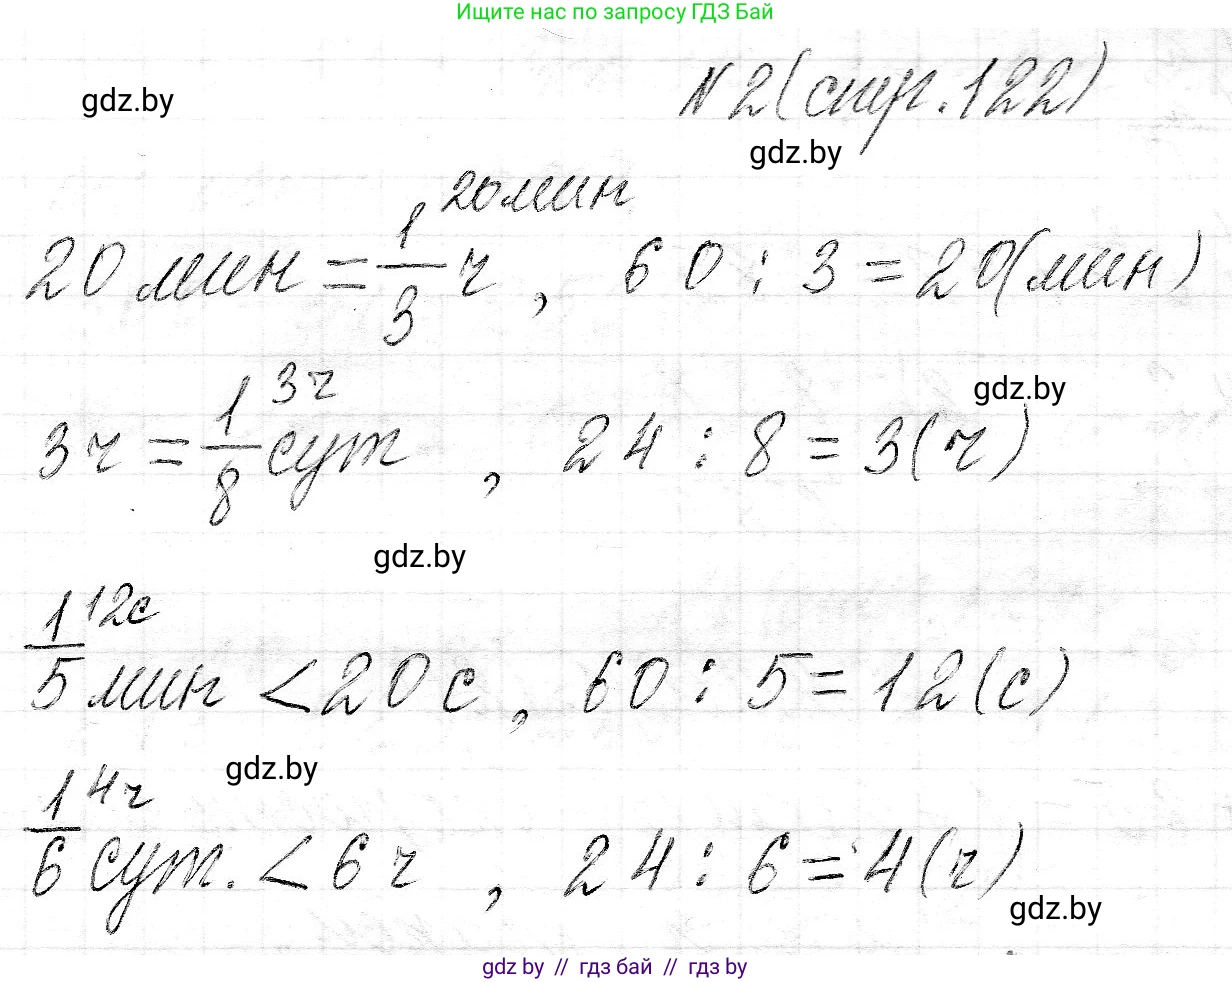 Ищите нас по запросу ГДЗ Бай
gdz.by
№2(стр.122)
gdz.by
20 мин
20 мин = 1/3 ч, 60 : 3 = 20(мин)
3 ч
gdz.by
3 ч = 1/8 сут, 24 : 8 = 3(ч)
gdz.by
12 с
1/5 мин < 20 с, 60 : 5 = 12(с)
gdz.by
4 ч
1/6 сут. < 6 ч, 24 : 6 = 4(ч)
gdz.by
gdz by // гдз бай // gdz by